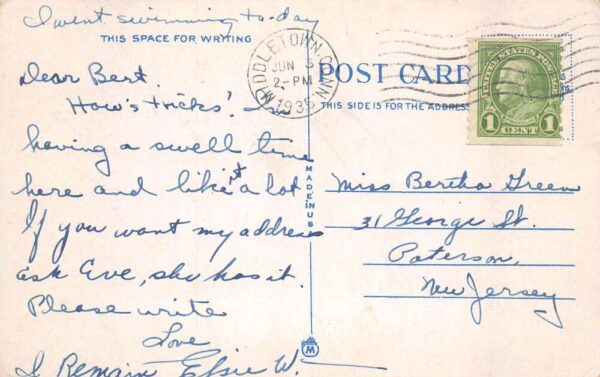 I went swimming to-day
THIS SPACE FOR WRITING
Dear Bert.
How's tricks? I'm
having a swell time
here and like it a lot
If you want my address
ask Eve, she has it.
Please write
Love
I Remain Elsie W.
MIDDLETOWN, CONN.
JUN
2-PM
1935
POST CARD
THIS SIDE IS FOR THE ADDRESS
UNITED STATES POSTAGE
1 CENT 1
MADE IN U.S.
Miss Bertha Green
31 George St.
Paterson,
New Jersey
M